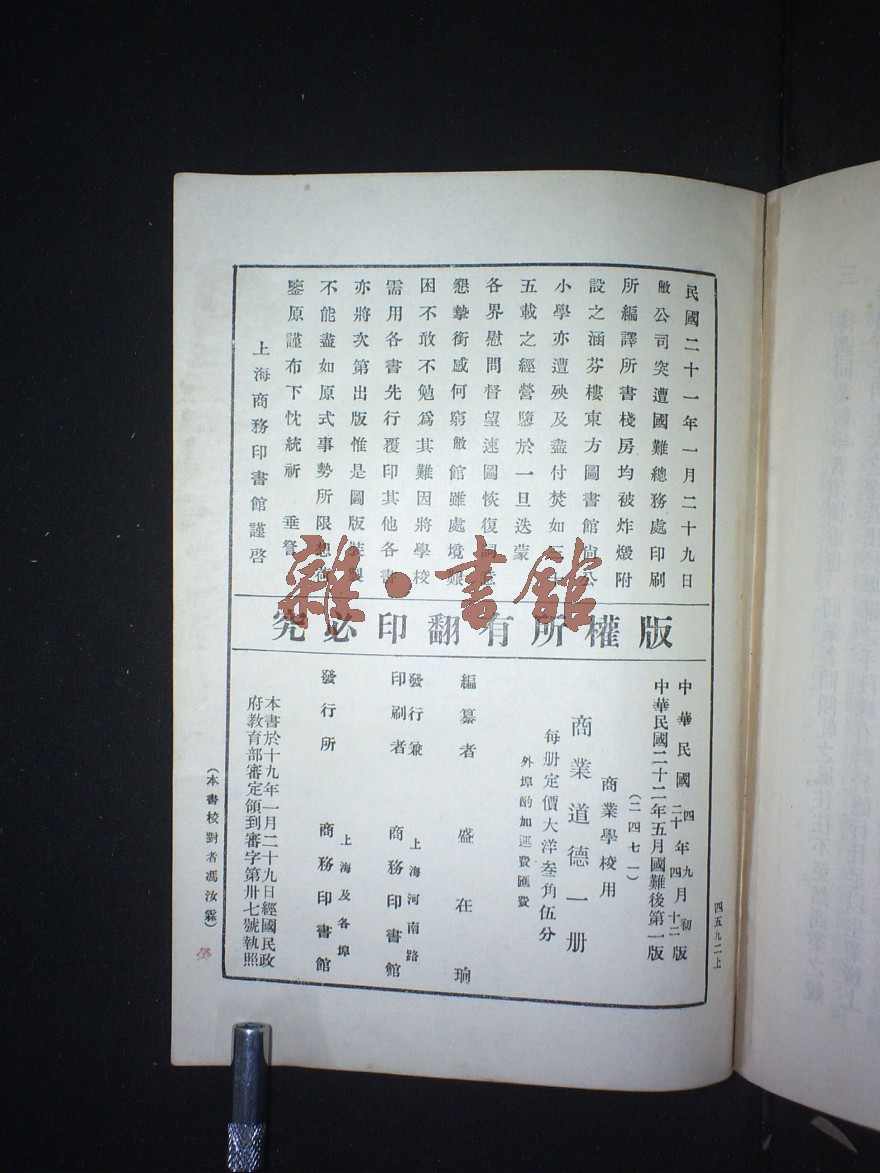 民國二十一年一月二十九日
敝公司突遭國難總務處印刷
所編譯所書棧房均被炸燬附
設之涵芬樓東方圖書館尙公
小學亦遭殃及盡付焚如三十
五載之經營隳於一旦迭蒙
各界慰問督望速圖恢復詞意
懇摯銜感何窮敝館雖處境艱
困不敢不勉爲其難因將學校
需用各書先行覆印其他各書
亦將次第出版惟是圖版裝製
不能盡如原式事勢所限想荷
鑒原謹布下忱統祈 垂詧
上海商務印書館謹啓
版權所有翻印必究
中華民國四年九月初版
二十年四月十二版
中華民國二十二年五月國難後第一版
(二四七一)
商業學校用
商業道德一册
每册定價大洋叁角伍分
外埠酌加運費匯費
編纂者 盛在珦
發行兼印刷者 上海河南路 商務印書館
發行所 上海及各埠 商務印書館
本書於十九年一月二十九日經國民政
府教育部審定領到審字第卅七號執照
(本書校對者馮汝霖)
四五九二上
雜·書館